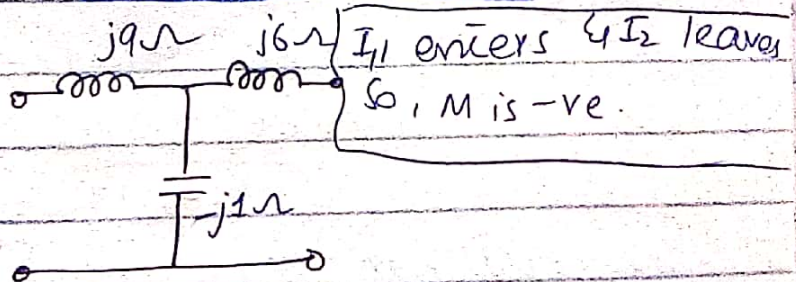 j9Ω j6Ω
I1 enters & I2 leaves
So, M is -ve.
-j1Ω